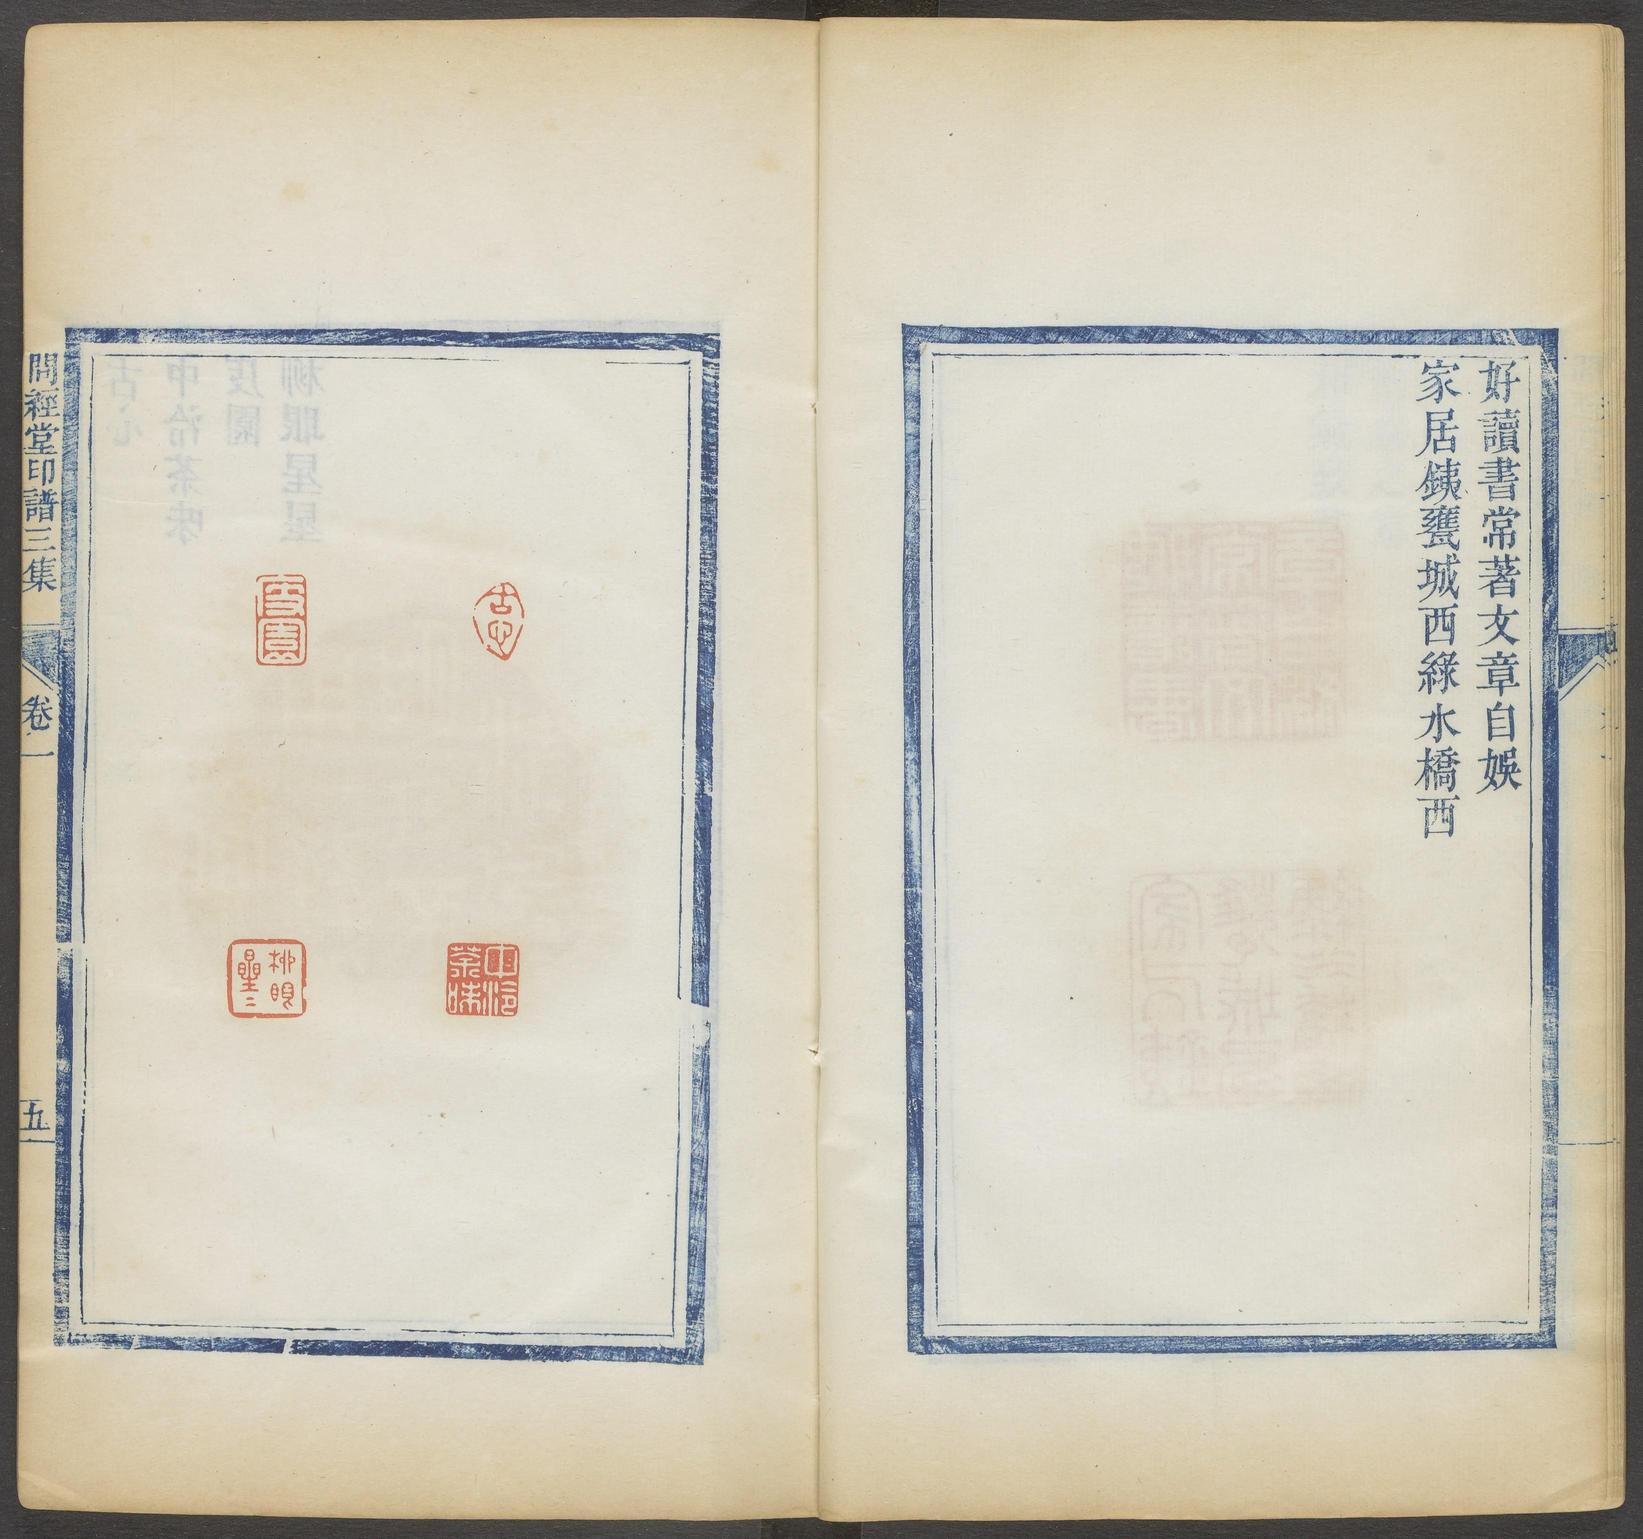 好讀書常著文章自娛
家居銕甕城西綠水橋西
古心
度園
中泠茶味
柳眼星星
問經堂印譜三集
卷一
五